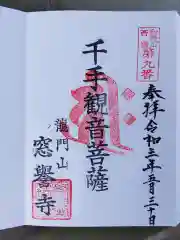 奉拝令和三年五月三十日
第九番
千手観音菩薩
龍門山
窓誉寺